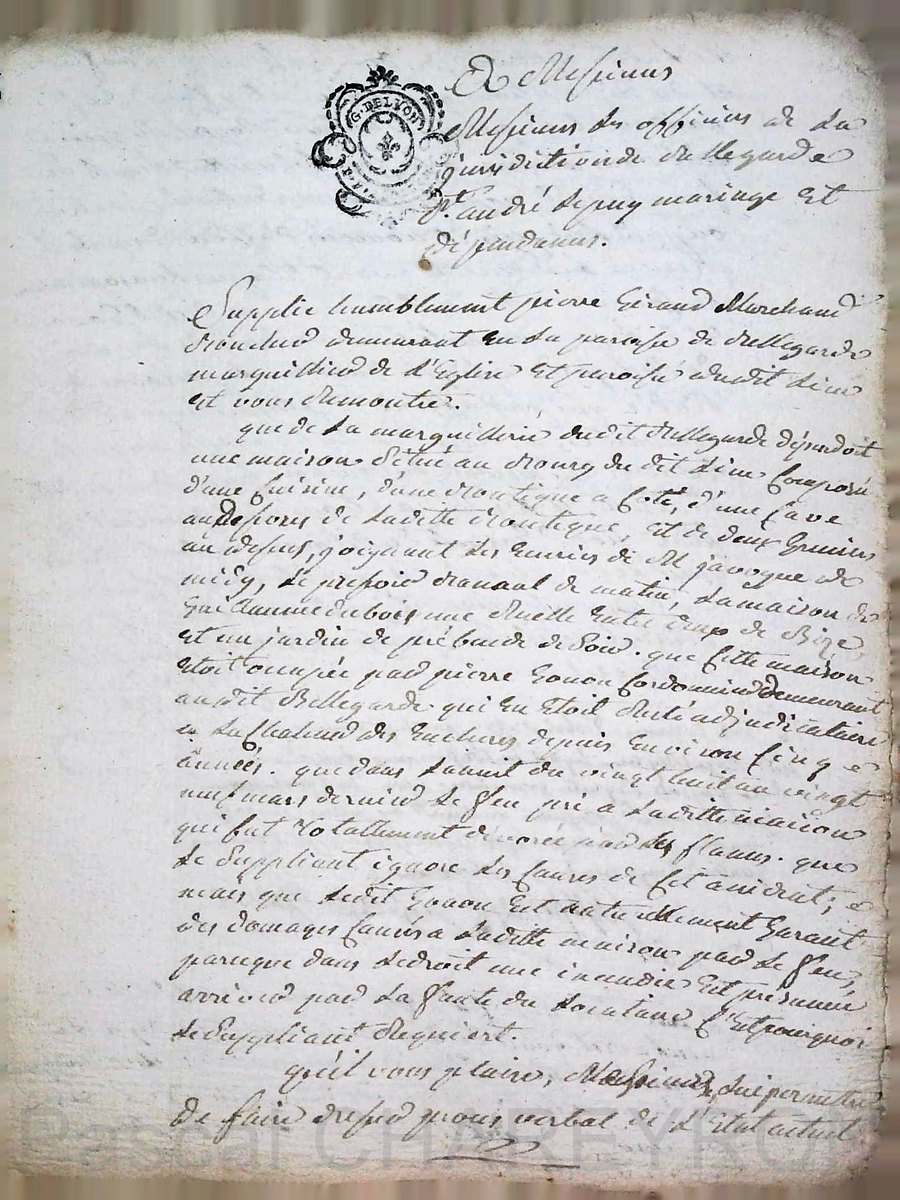 G. DE LYON
A Messieurs
Messieurs les officiers de la
jurisdiction de Bellegarde
St. andré le puy maringe Et
dépendances.
Supplie humblement pierre Girand Marchand
demeurant en la paroisse de Bellegarde
marguillier de L'Eglise Et paroisse dudit Lieu
Et vous Remontre.
que de La marguillerie dudit Bellegarde dépendoit
une maison Située au Bourg du dit Lieu Composée
d'une Cuisine, d'une Boutique a Coté, d'une Cave
au de Ladite Boutique, Et de deux Greniers
au depus, joignant Les Ecuries de M. javogue de
midy, Le pressoir Banal de matin, La maison de
Guillaume dubois une Ruelle Entre deux de Bize,
Et un jardin de prébende de Soir. que Cette maison
Etoit occupée par pierre Gonon Cordonnier Demeurant
audit Bellegarde qui En Etoit Resté adjudicataire
a La Chaleur des Encheres depuis Environ Cinq
années. que dans La nuit du vingt huit au vingt
neuf mars dernier Le feu prit a Ladite maison
qui fut Totallement dévorée par les flames. que
Le Suppliant ignore Les Causes de Cet accident;
mais que Ledit Gonon Est naturellement Garant
des domages Causés a Ladite maison par Le feu,
parceque dans Le droit une incendie Est présumée
arriver par La faute du Locataire C'Est pourquoi
Le Suppliant Requiert.
qu'il vous plaise, Messieurs, Lui permettre
de faire dresser procès verbal de L'Etat actuel
Pascal CHAREYRON